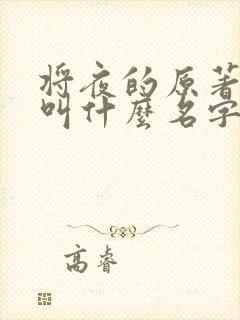 将夜的原著
叫什麽名字
高睿